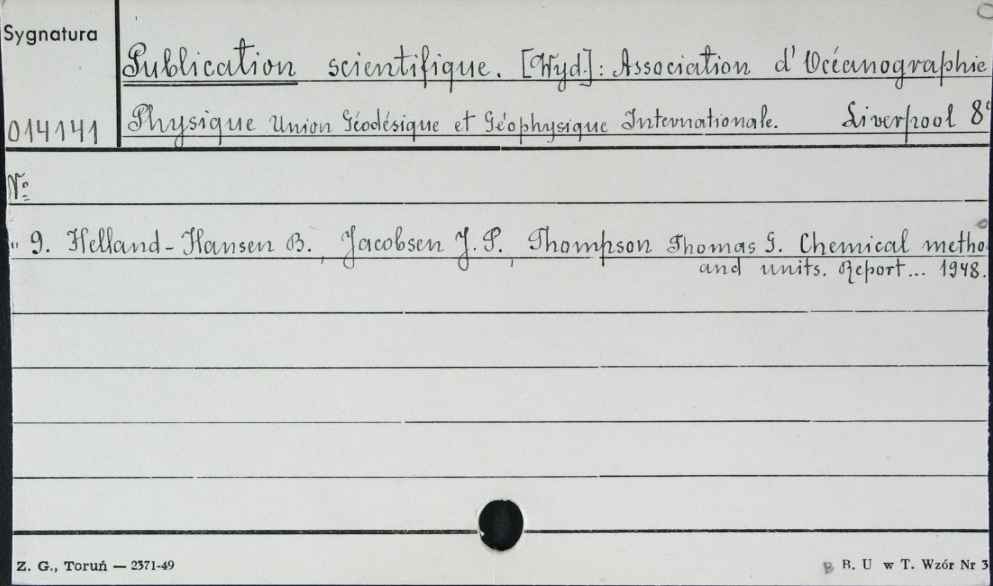 Sygnatura
Publication scientifique. [Wyd.]: Association d'Océanographie
014141 Physique Union Géodésique et Géophysique Internationale. Liverpool 8°
№:
" 9. Helland-Hansen B., Jacobsen J.P., Thompson Thomas G. Chemical metho
and units. Report... 1948.
Z. G., Toruń — 2371-49
B. U w T. Wzór Nr 3